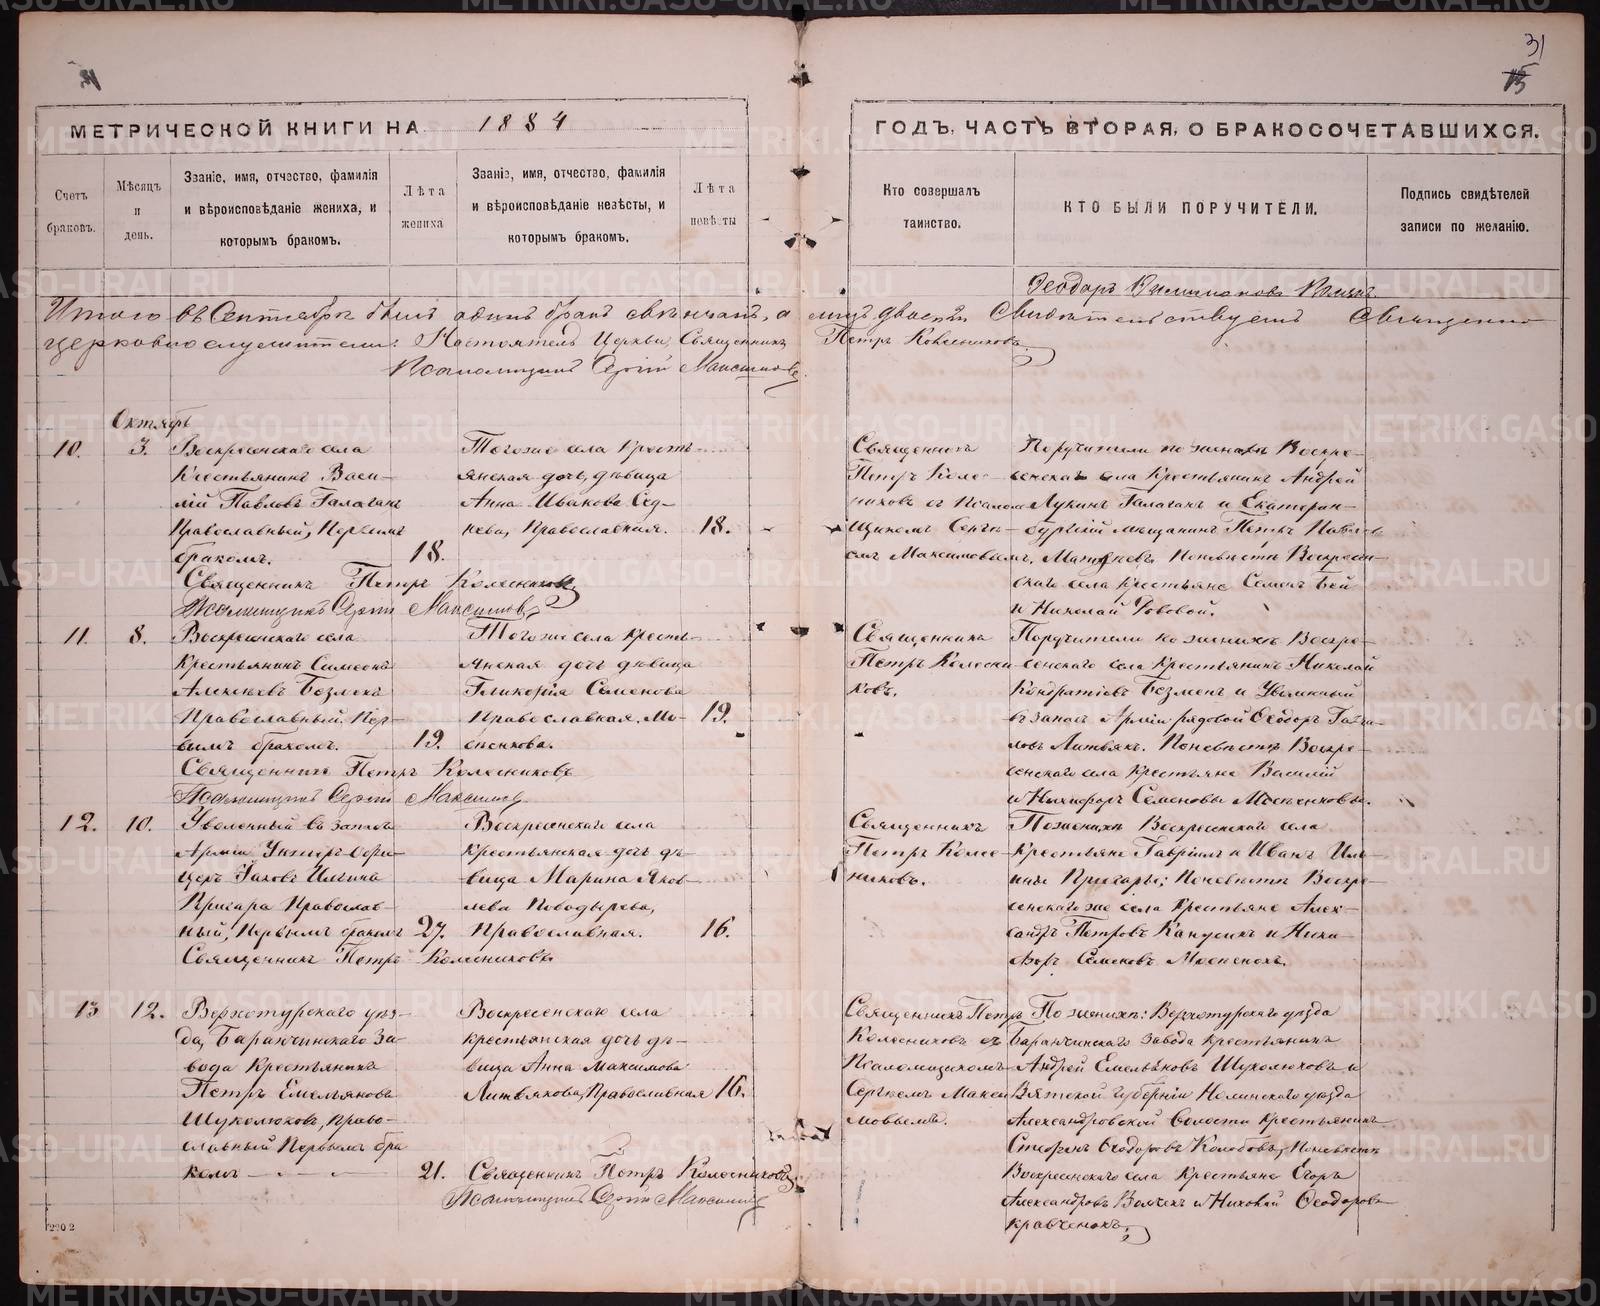 31
15
МЕТРИЧЕСКОЙ КНИГИ НА 1884
ГОДЪ, ЧАСТЬ ВТОРАЯ, О БРАКОСОЧЕТАВШИХСЯ.
Счетъ браковъ.
Мѣсяцъ и день.
Званіе, имя, отчество, фамилія
и вѣроисповѣданіе жениха, и
которымъ бракомъ.
Лѣта
жениха
Званіе, имя, отчество, фамилія
и вѣроисповѣданіе невѣсты, и
которымъ бракомъ.
Лѣта
невѣсты
Кто совершалъ
таинство.
КТО БЫЛИ ПОРУЧИТЕЛИ.
Подпись свидѣтелей
записи по желанію.
Ѳеодоръ
Итого въ Сентябрѣ былъ одинъ бракъ свѣнчанъ, а лицъ двое Свидѣтельствуемъ Священно
церковнослужители: Настоятель Церкви, Священникъ Петръ Колесниковъ
Псаломщикъ Сергій Максимовъ
Октябрь
10. 3.
Воскресенскаго села
Крестьянинъ Васи-
лій Павловъ Галаганъ
Православный, Первымъ
бракомъ. 18.
Тогоже села Кресть-
янская дочь, дѣвица
Анна Иванова Сѣд-
нева, Православная. 18.
Священникъ
Петръ Колес-
никовъ съ Псалом-
щикомъ Сергѣ-
емъ Максимовымъ.
Поручители по женихѣ Воскре-
сенскаго села Крестьянинъ Андрей
Лукинъ Галаганъ и Екатерин-
бургскій мѣщанинъ Петръ Павловъ
Матвѣевъ. По невѣстѣ Воскресен-
скаго села Крестьяне Семенъ Бей
и Николай Вововой.
Священникъ Петръ Колесниковъ
Псаломщикъ Сергій Максимовъ
11. 8.
Воскресенскаго села
Крестьянинъ Симеонъ
Алексѣевъ Безменъ
Православный, Пер-
вымъ бракомъ. 19.
Тогоже села Кресть-
янская дочь дѣвица
Гликерія Семенова
Православная. Мо-
сенкова. 19.
Священникъ
Петръ Колесни-
ковъ.
Поручители по женихѣ Воскре-
сенскаго села Крестьянинъ Николай
Кондратіевъ Безменъ и Уволенный
въ запасъ Арміи рядовой Ѳеодоръ Гаври-
ловъ Литвякъ. По невѣстѣ Воскре-
сенскаго села Крестьяне Василій
и Никифоръ Семеновы Мосенковы.
Священникъ Петръ Колесниковъ
Псаломщикъ Сергій Максимовъ
12. 10.
Уволенный въ запасъ
Арміи Унтеръ-Офи-
церъ Іаковъ Ильинъ
Пригара Православ-
ный, Первымъ бракомъ 27.
Воскресенскаго села
Крестьянская дочь дѣ-
вица Марина Яков-
лева Поводырева,
Православная. 16.
Священникъ
Петръ Колес-
никовъ.
По женихѣ Воскресенскаго села
Крестьяне Гавріилъ и Иванъ Иль-
ины Пригары; По невѣстѣ Воскре-
сенскагоже села Крестьяне Алек-
сандръ Петровъ Канусикъ и Ники-
форъ Семеновъ Мосенокъ.
Священникъ Петръ Колесниковъ
13 12.
Верхотурскаго уѣз-
да, Баранчинскаго За-
вода Крестьянинъ
Петръ Емельяновъ
Шуколюковъ, Право-
славный Первымъ бра-
комъ 21.
Воскресенскаго села
крестьянская дочь дѣ-
вица Анна Максимова
Литвякова, Православная 16.
Священникъ Петръ
Колесниковъ съ
Псаломщикомъ
Сергѣемъ Макси-
мовымъ.
По женихѣ: Верхотурскаго уѣзда
Баранчинскаго завода Крестьянинъ
Андрей Емельяновъ Шуколюковъ и
Вятской губерніи Нолинскаго уѣзда
Александровской Волости Крестьянинъ
Стефанъ Ѳеодоровъ Колобовъ; По невѣстѣ
Воскресенскаго села Крестьяне Егоръ
Александровъ Волчекъ и Николай Ѳеодоровъ
Кравченокъ.
Священникъ Петръ Колесниковъ
Псаломщикъ Сергій Максимовъ
METRIKI.GASO-URAL.RU